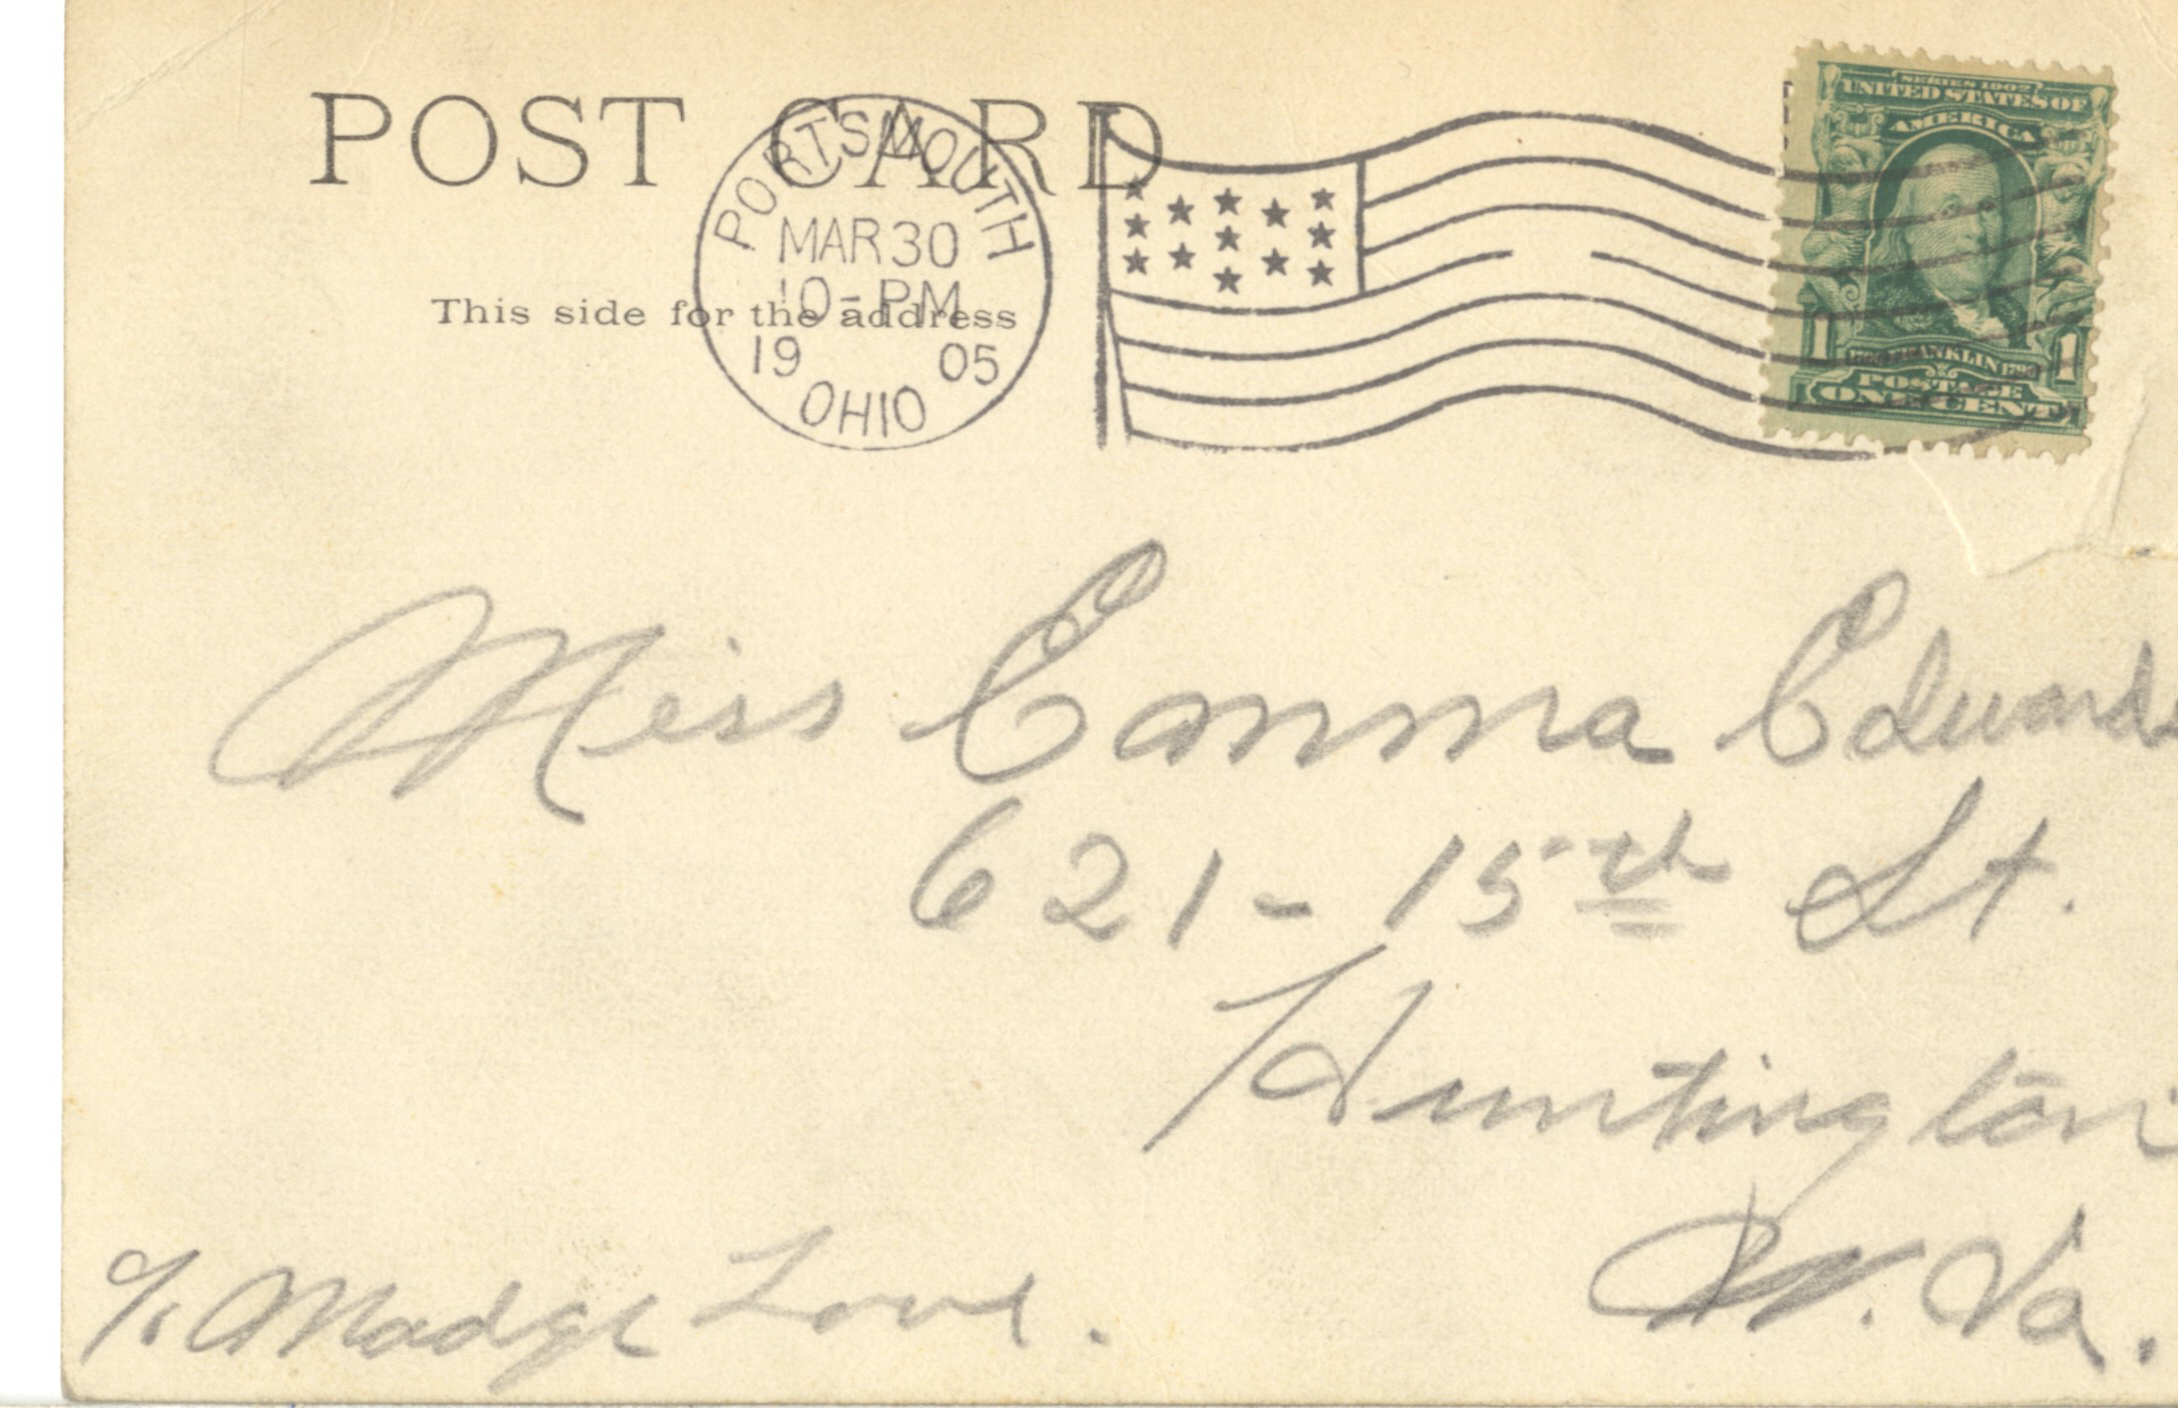 POST CARD
This side for the address
PORTSMOUTH
MAR 30
10-PM
19 05
OHIO
SERIES 1902
UNITED STATES OF
AMERICA
1 FRANKLIN 1
POSTAGE
ONE CENT
Miss Emma Edwards
621 - 15th St.
Huntington
W. Va.
c/o Madge Love.